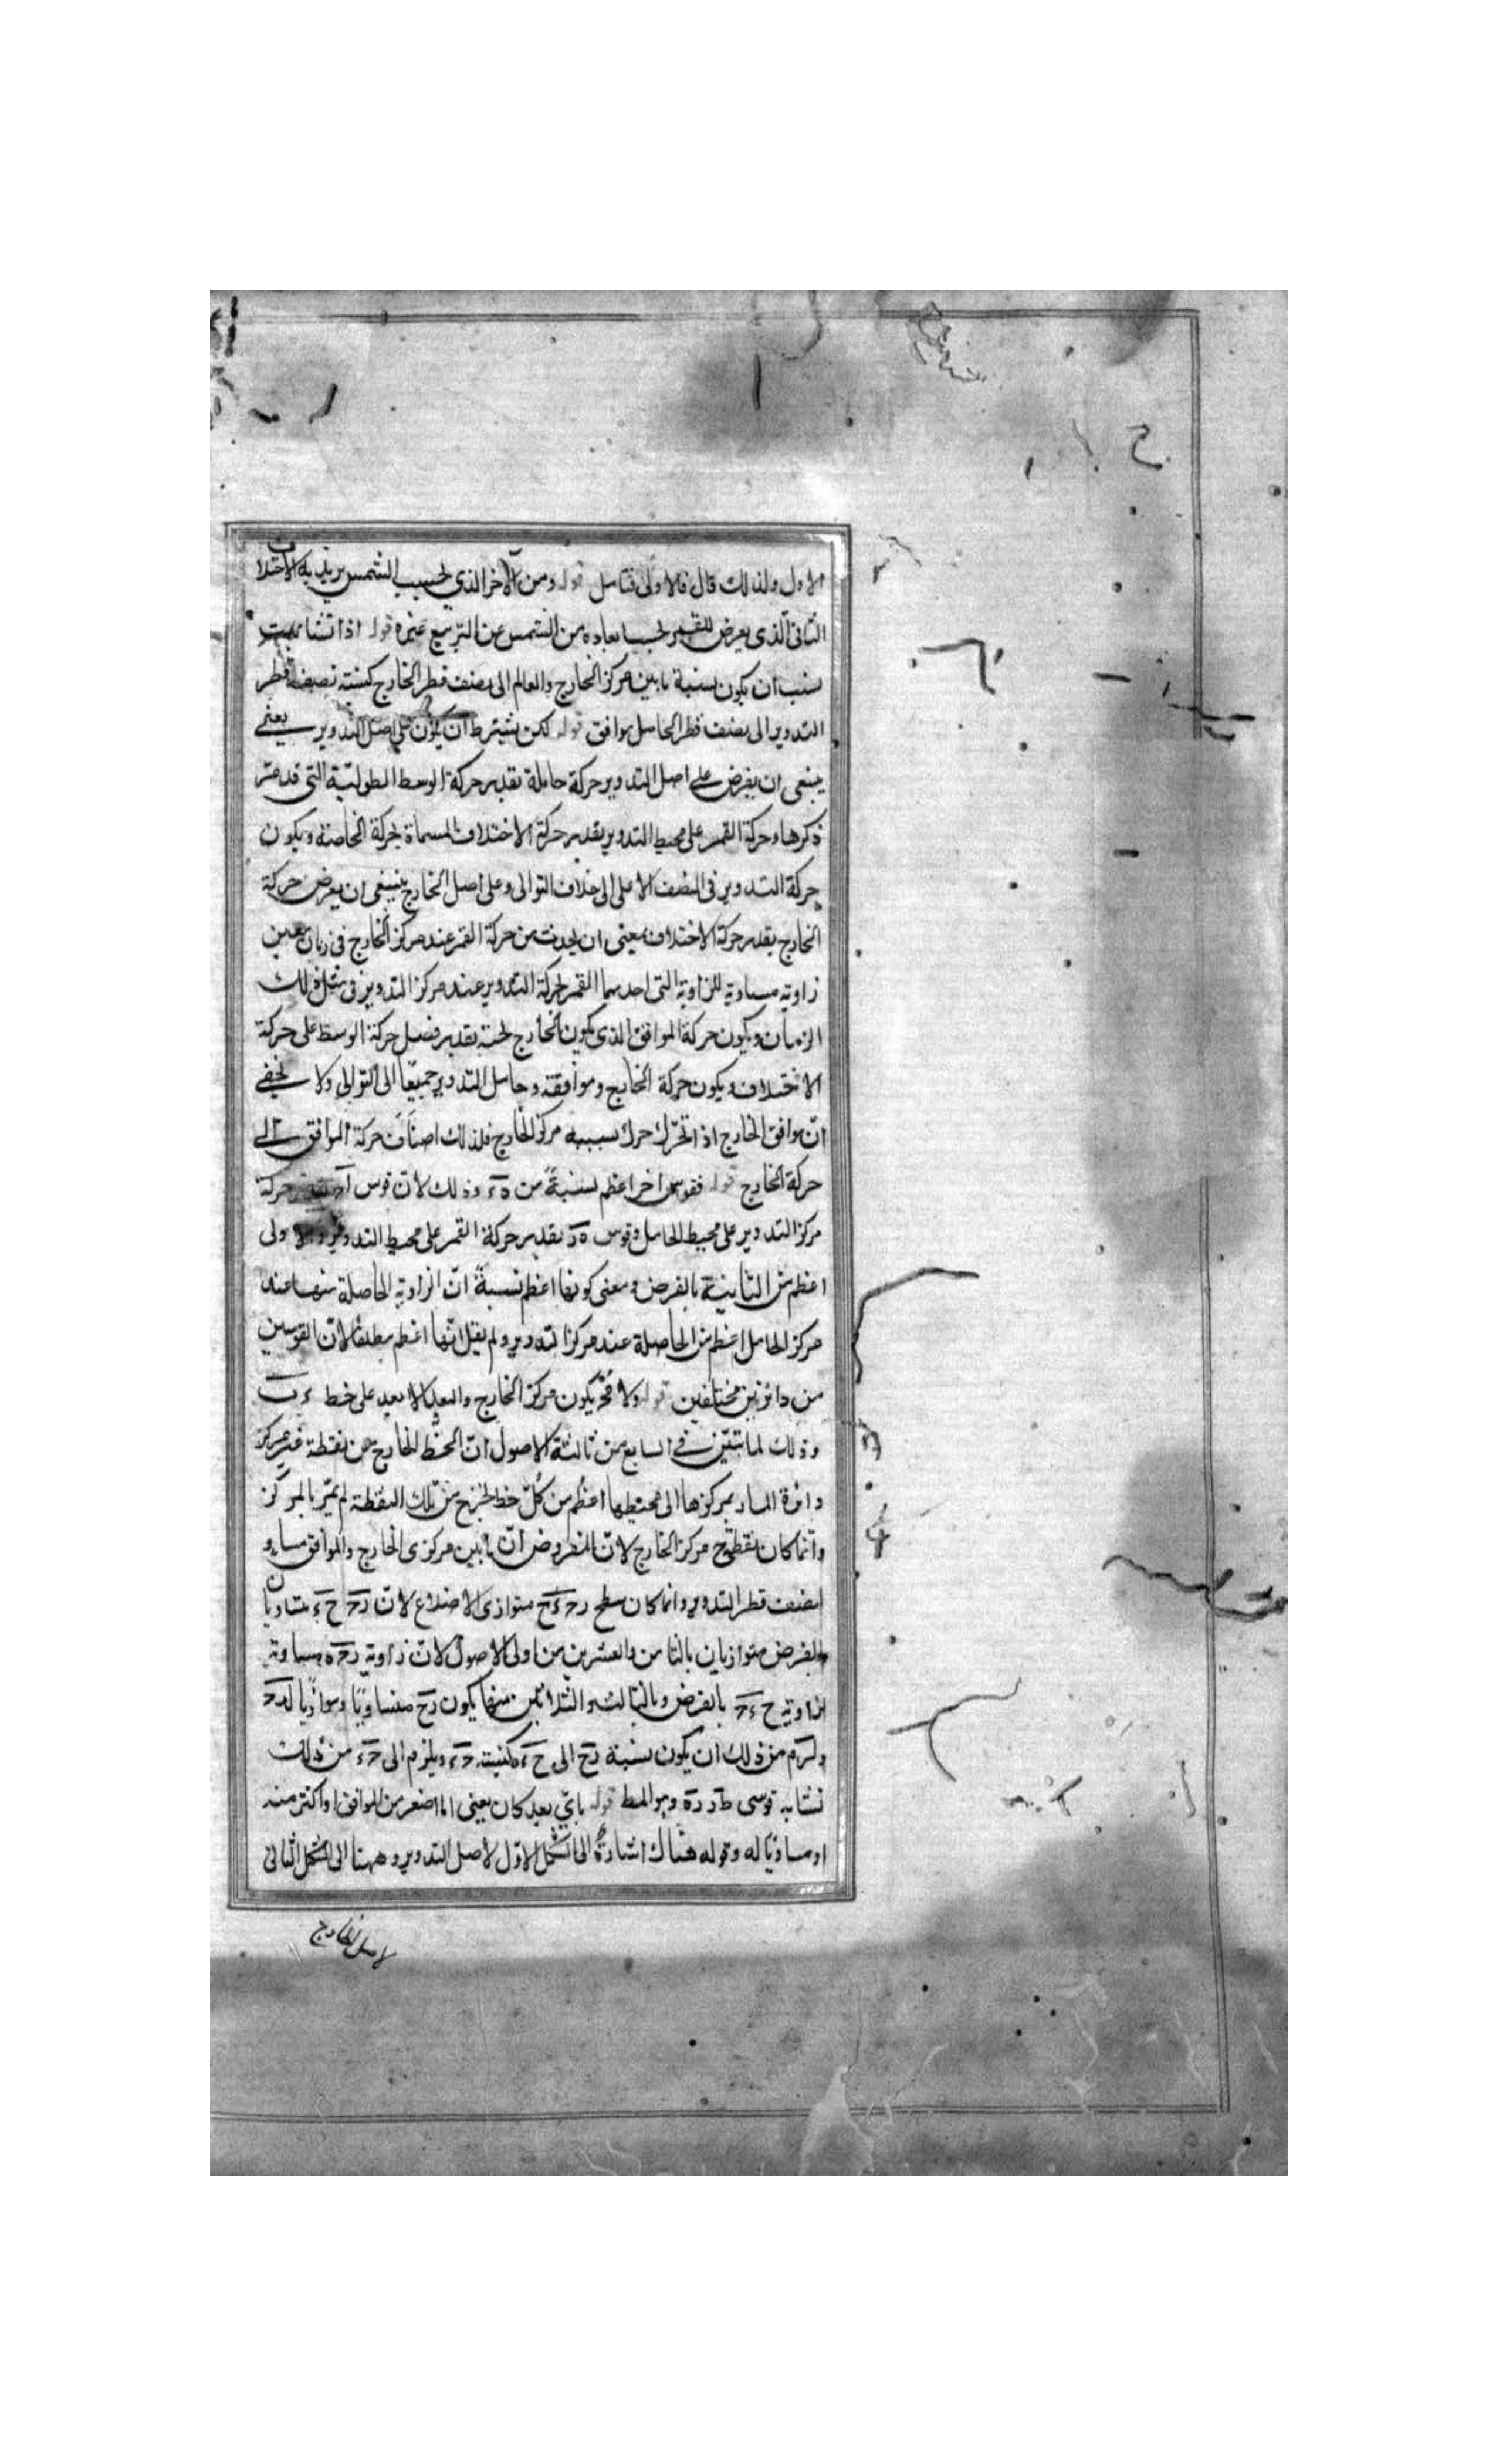 الاول ولذلك قال فالاولى فتامل قوله ومن الاخر الذى بحسب الشمس يريد به الاختلاف
الثانى الذى يعرض للقمر بحسب ابعاده من الشمس عن التربيع غيره قوله اذا تشابهت
نسب ان يكون نسبة ما بين مركز الخارج والعالم الى نصف قطر الخارج كنسبة نصف قطر
التدوير الى نصف قطر الحامل موافق قوله لكن نشترط ان يكون على اصل التدوير يعنى
ينبغى ان يفرض على اصل التدوير حركة حاملة بقدر حركة الوسط الطولية التى قد مر
ذكرها وحركة القمر على محيط التدوير بقدر حركة الاختلاف المسماة بحركة الخاصة ويكون
حركة التدوير فى النصف الاعلى الى خلاف التوالى وعلى اصل الخارج ينبغى ان يعرض حركة
الخارج بقدر حركة الاختلاف بمعنى ان يحدث من حركة القمر عند مركز الخارج فى زمان معين
زاوية مساوية للزاوية التى احدثها القمر بحركة التدوير عند مركز التدوير فى مثل ذلك
الزمان ويكون حركة الموافق الذى يكون الخارج بقدر فضل حركة الوسط على حركة
الاختلاف ويكون حركة الخارج وموافقه وحامل التدوير جميعا الى التوالى ولا يخفى
ان موافق الخارج اذا تحرك حرك بسببه مركز الخارج فلذلك اضاف حركة الموافق الى
حركة الخارج قوله فقوس اخر اعظم نسبة من وذلك لان قوس حركة
مركز التدوير على محيط الحامل وقوس بقدر حركة القمر على محيط التدوير والاولى
اعظم من الثانية بالفرض ومعنى كونها اعظم نسبة ان الزاوية الحاصلة منها عند
مركز الحامل اعظم من الحاصلة عند مركز التدوير ولم يقل انها اعظم مطلقا لان القوسين
من دائرتين مختلفين قوله ولا يكون مركز الخارج والبعد الابعد على خط
وذلك لما تبين فى السابع من ثالثة الاصول ان الخط الخارج من نقطة غير مركز
دائرة المار بمركزها الى محيطها اعظم من كل خط يخرج من تلك النقطة لم يمر بالمركز
وانما كان نقطة ح مركز الخارج لان المفروض ان ما بين مركزى الخارج والموافق مساو
لنصف قطر التدوير وانما كان سطح متوازى الاضلاع لان متساويان
بالفرض متوازيان بالثامن والعشرين من اولى الاصول لان زاوية مساوية
لزاوية بالفرض وبالثالث والثلاثين منها يكون متساويا وموازيا
ولزم من ذلك ان يكون نسبة الى كنسبة ويلزم الى من ذلك
تشابه قوسى وهو المط قوله باى بعد كان يعنى اما اصغر من الموافق او اكثر منه
او مساويا له وقوله هناك اشارة الى الشكل الاول لاصل التدوير وههنا الى الشكل الثانى
لاصل الخارج